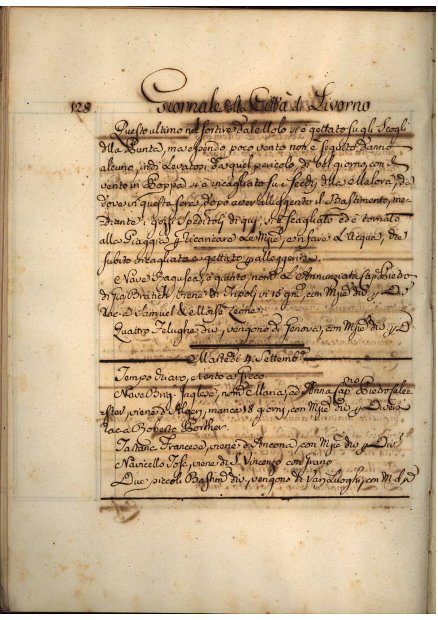 128
Giornale della Città di Livorno
Questo ultimo nel sortire dal Molo si è gettato sugli Scogli
della Punta, ma essendo poco vento non è seguito danno
alcuno, indi levatosi da quel pericolo di bel giorno, con il
vento in Poppa si è incagliato su i della Malora, da
dove in questa sera dopo aver alleggerito il Bastimento, me-
diante i Gozzi speditoli di qui, si è scagliato ed è tornato
alla Piaggia ricaricare le e in fare l'Acqua, che
subito incagliato e gettato
Nave Ragusea, è quinto nom. L'Annunziata Cap. Pietro
di Gio. viene di Tripoli in 16 gni, con Mzie div. p. D
Rac. a Samuel e Moisè Leone
Quattro Feluche div. vengono di Genova, con Mzie div. p. D
Martedì 4. Settembe
Tempo chiaro, e vento a Greco
Nave Ong. Inglese, nom. Maria, ed Anna Cap.no Pietro
viene d' manca 18 giorni, con Mzie div. p. Div.
Rac. a Roberto
Tartana Francese, viene di Ancona, con Mzie div. p. Div.
Navicello Tosc. viene di S. Vincenzo con Grano
Due piccoli Bastim. div. vengono di Van Luoghi, con M. d. p.